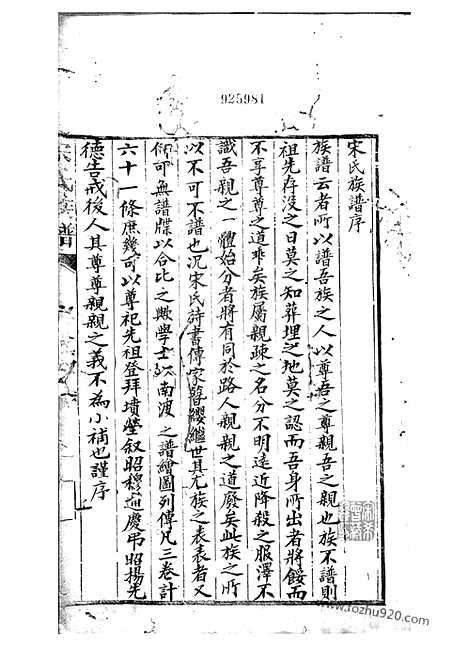 925981
宋氏族譜序
族譜云者所以譜吾族之人以尊吾之尊親吾之親也族不譜則
祖先存没之日莫之知葬埋之地莫之認而吾身所出者將餒而
不享尊尊之道乖矣族屬親疎之名分不明遠近降殺之服澤不
識吾親之一體始分者將有同於路人親親之道廢矣此族之所
以不可不譜也况宋氏詩書傳家簪纓繼世其尤族之表表者又
何可無譜牒以合比之歟學士 南渡之譜繪圖列傳凡三卷計
六十一條庶幾可以尊祀先祖登拜墳塋叙昭穆通慶弔昭揚先
德告戒後人其尊尊親親之義不為小補也謹序
氏族譜
www.tozhu920.com